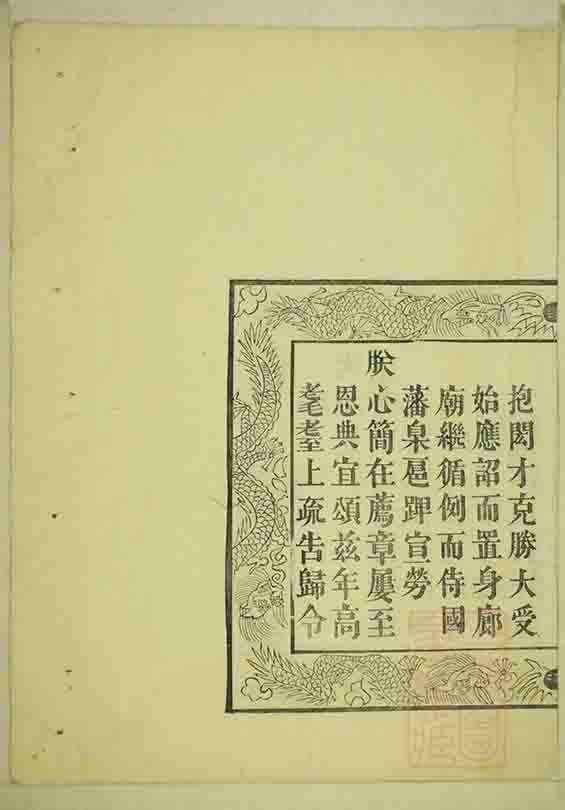 抱閎才克勝大受
始應詔而置身廊
廟繼循例而侍國
藩臬扈蹕宣勞
朕心簡在薦章屢至
恩典宜頒茲年高
耄耋上疏告歸令